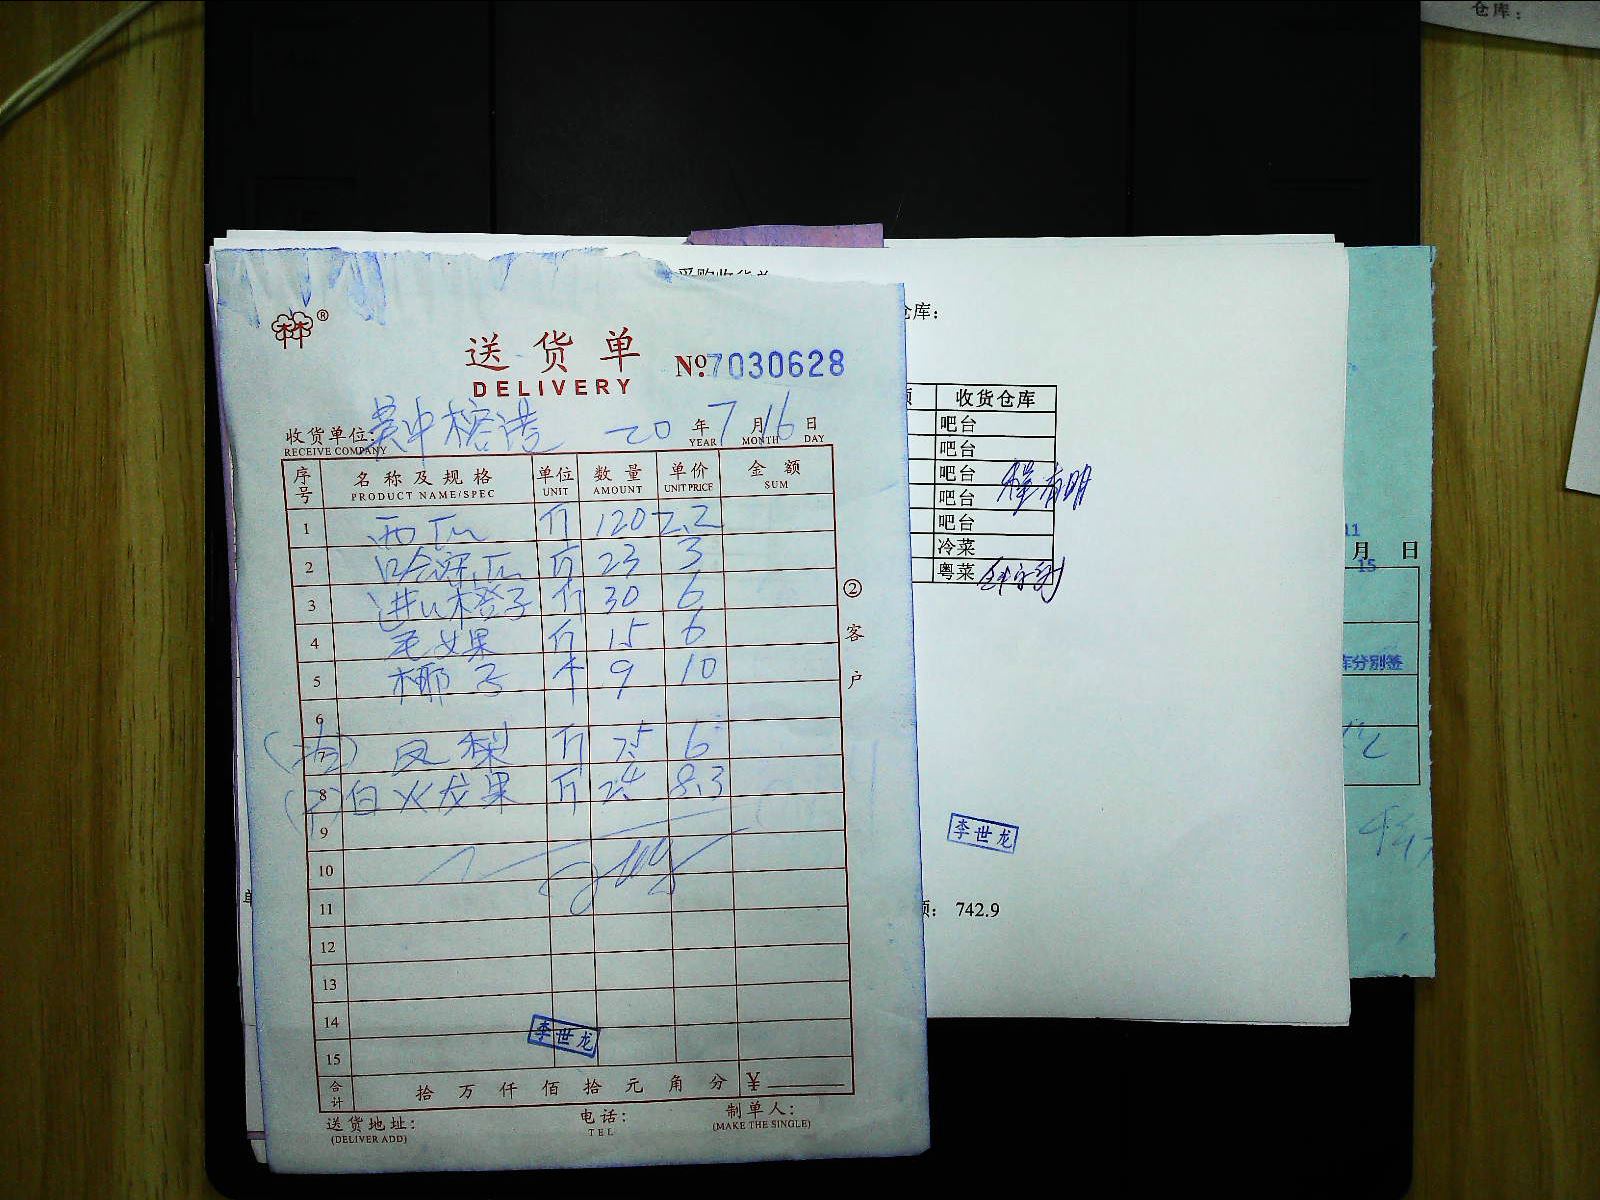 仓库：
采购收货单
仓库：
®
送货单
DELIVERY
№7030628
收货单位: 吴中榕港 20 年 7 月 16 日
RECEIVE COMPANY YEAR MONTH DAY
序号 名称及规格 单位 数量 单价 金额
PRODUCT NAME/SPEC UNIT AMOUNT UNIT PRICE SUM
1 西瓜 斤 120 2.2
2 哈密瓜 斤 23 3
3 进口橙子 斤 30 6
4 斤 15 6
5 椰子 个 9 10
6
7 凤梨 斤 7.5 6
8 白火龙果 斤 2.4 8.3
9
10
11
12
13
14
15
李世龙
合计 拾 万 仟 佰 拾 元 角 分 ¥
送货地址: 电话: 制单人:
(DELIVER ADD) TEL (MAKE THE SINGLE)
② 客户
额 收货仓库
吧台
吧台
吧台
吧台
吧台
冷菜
粤菜
李世龙
额： 742.9
11
月 日
15
库分别签